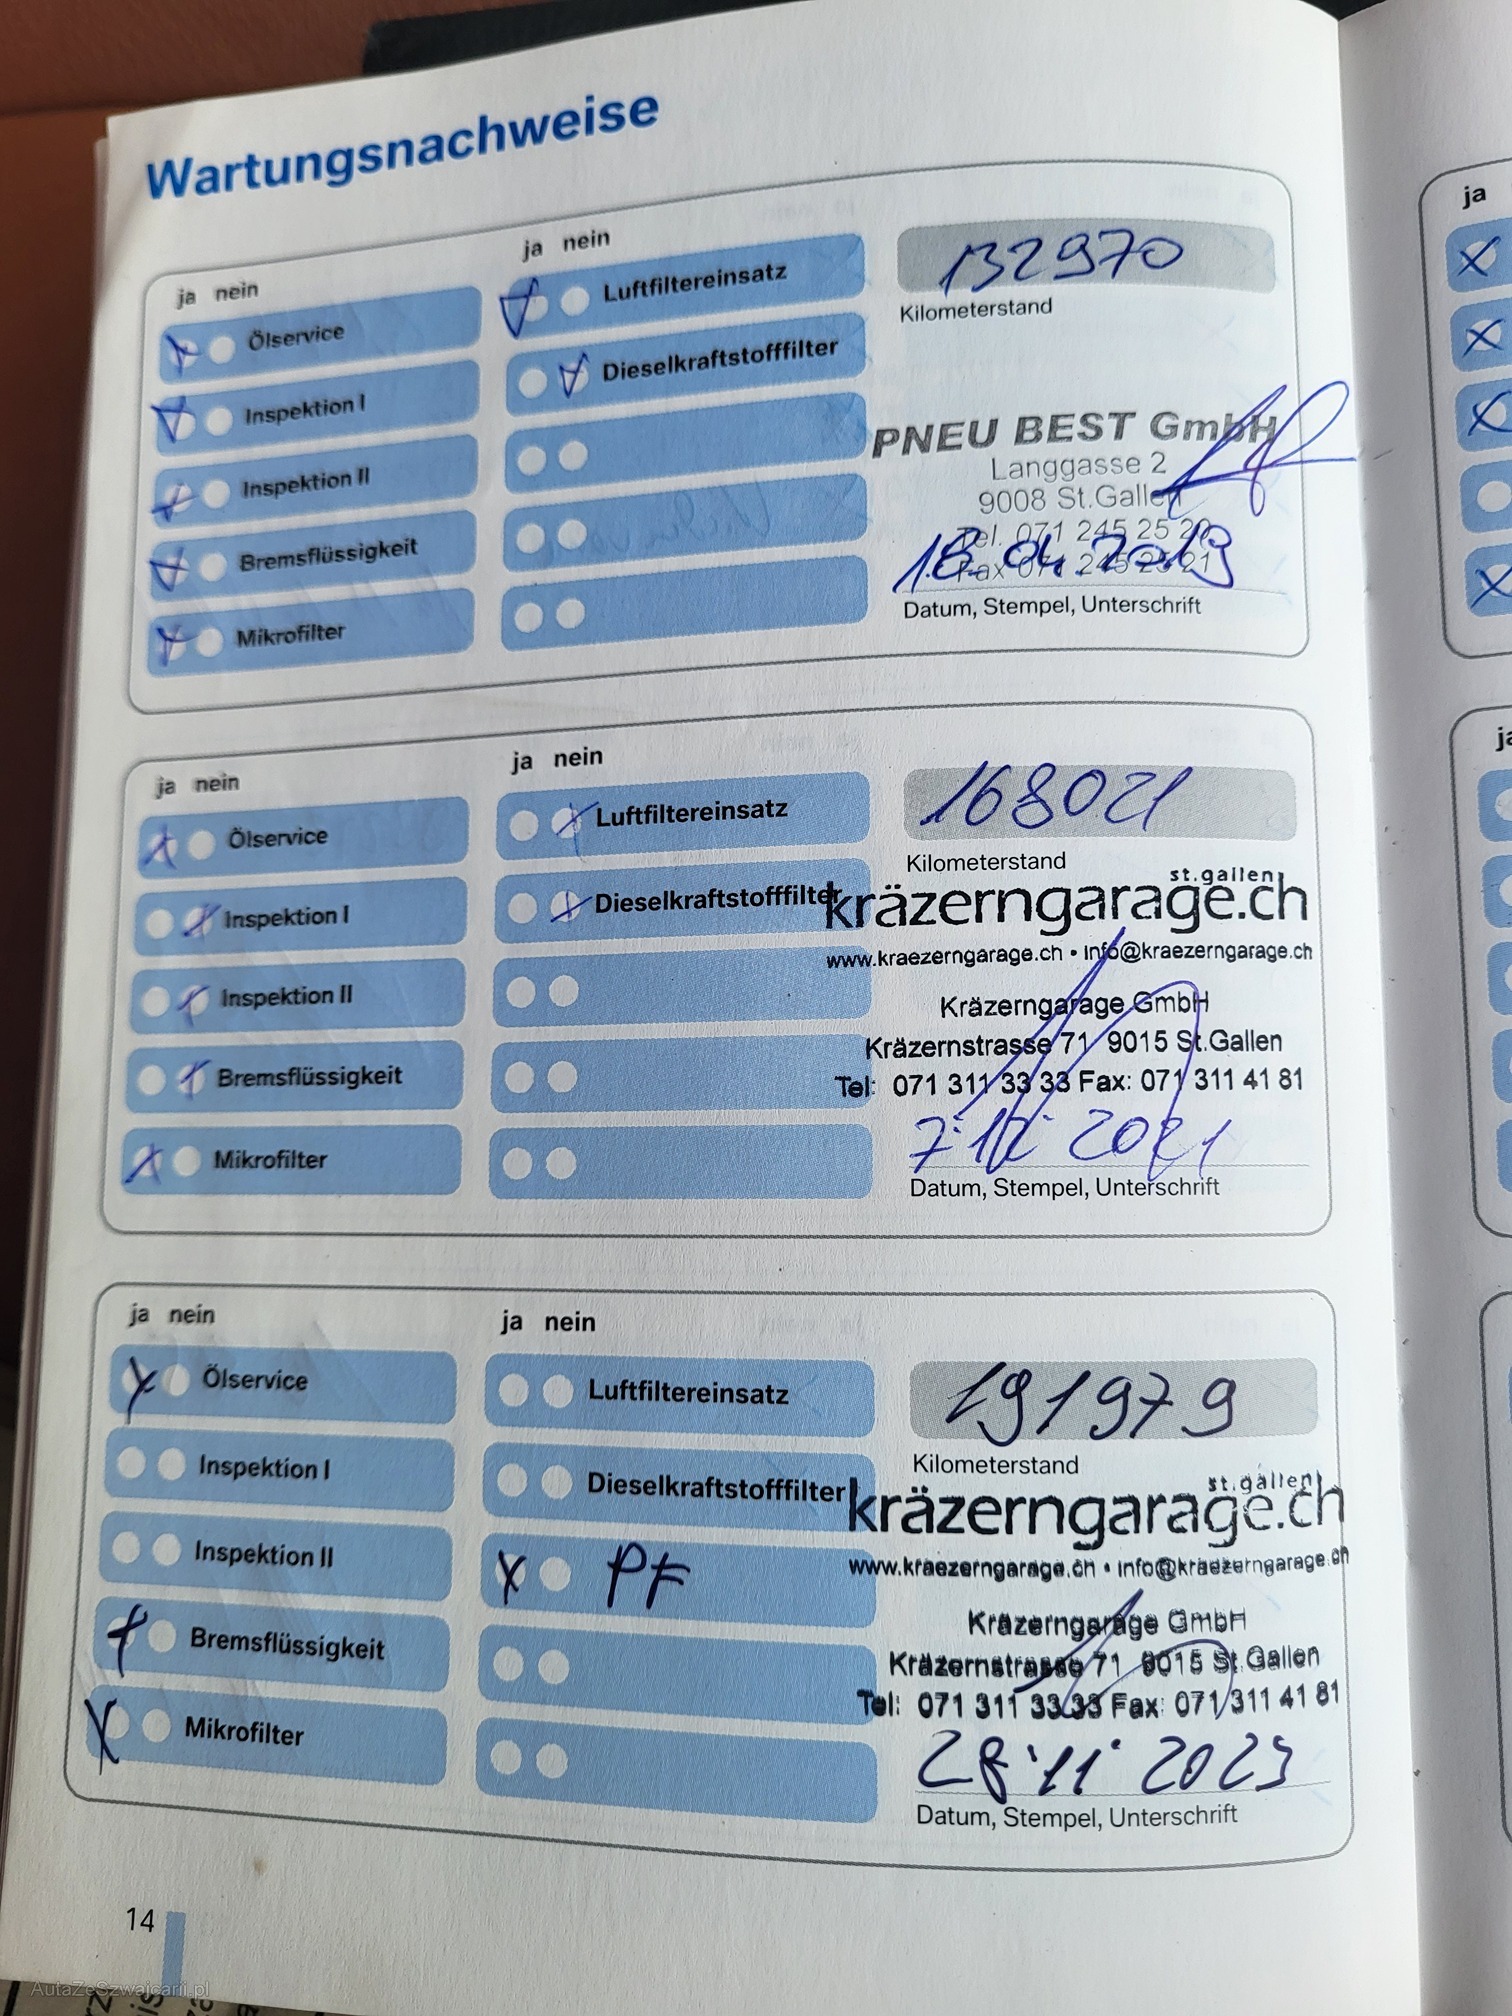 Wartungsnachweise
ja nein
Ölservice
Inspektion I
Inspektion II
Bremsflüssigkeit
Mikrofilter
ja nein
Luftfiltereinsatz
Dieselkraftstofffilter
132970
Kilometerstand
PNEU BEST GmbH
Langgasse 2
9008 St.Gallen
Tel. 071 245 25 20
Fax 071 245 25 21
18.04.2019
Datum, Stempel, Unterschrift
ja nein
Ölservice
Inspektion I
Inspektion II
Bremsflüssigkeit
Mikrofilter
ja nein
Luftfiltereinsatz
Dieselkraftstofffilter
168021
Kilometerstand
st.gallen
kräzerngarage.ch
www.kraezerngarage.ch • info@kraezerngarage.ch
Kräzerngarage GmbH
Kräzernstrasse 71 9015 St.Gallen
Tel: 071 311 33 33 Fax: 071 311 41 81
2021
Datum, Stempel, Unterschrift
ja nein
Ölservice
Inspektion I
Inspektion II
Bremsflüssigkeit
Mikrofilter
ja nein
Luftfiltereinsatz
Dieselkraftstofffilter
PF
191979
Kilometerstand
st.gallen
kräzerngarage.ch
www.kraezerngarage.ch • info@kraezerngarage.ch
Kräzerngarage GmbH
Kräzernstrasse 71 9015 St.Gallen
Tel: 071 311 33 33 Fax: 071 311 41 81
28.11.2023
Datum, Stempel, Unterschrift
14
ja
AutaZeSzwajcarii.pl